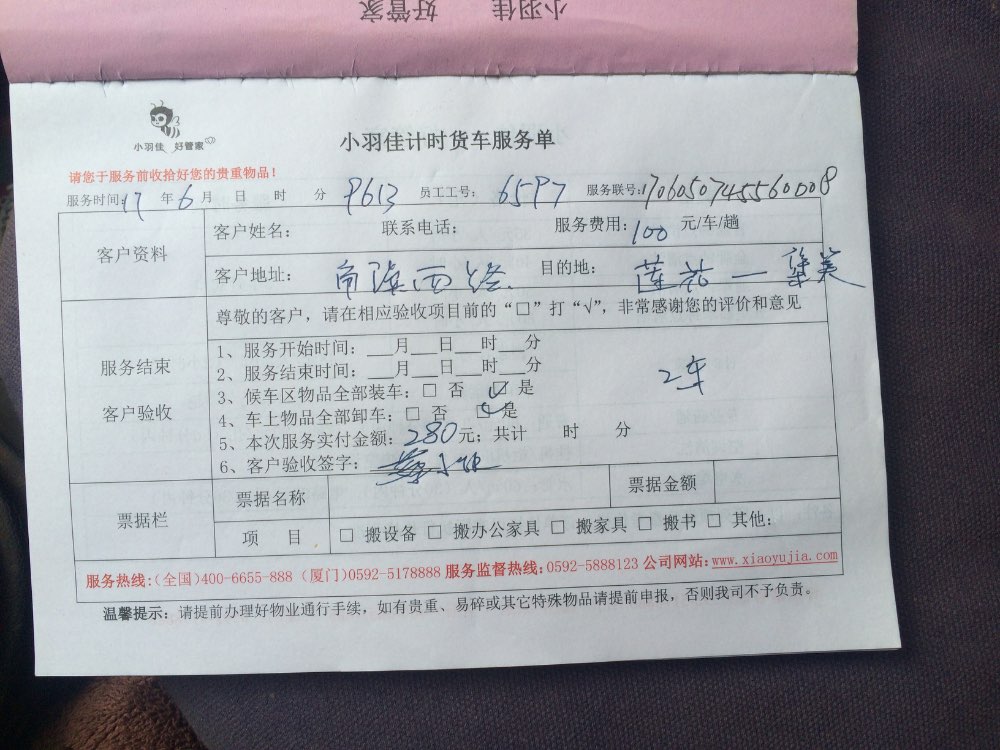 小羽佳 好管家
小羽佳 好管家
小羽佳计时货车服务单
请您于服务前收拾好您的贵重物品！
服务时间: 17 年 6 月 日 时 分 9613 员工工号: 6597 服务联号: 1706050745560008
客户资料
客户姓名: 联系电话: 服务费用: 100 元/车/趟
客户地址: 西路 目的地: 莲花 — 集美
尊敬的客户，请在相应验收项目前的“□”打“√”，非常感谢您的评价和意见
服务结束
客户验收
1、服务开始时间：___月___日___时___分
2、服务结束时间：___月___日___时___分
3、候车区物品全部装车：□ 否 ☑ 是
4、车上物品全部卸车：□ 否 ☑ 是
2车
5、本次服务实付金额: 280 元；共计 时 分
6、客户验收签字：
票据栏
票据名称 票据金额
项 目 □ 搬设备 □ 搬办公家具 □ 搬家具 □ 搬书 □ 其他:
服务热线:(全国)400-6655-888 (厦门)0592-5178888 服务监督热线:0592-5888123 公司网站:www.xiaoyujia.com
温馨提示：请提前办理好物业通行手续，如有贵重、易碎或其它特殊物品请提前申报，否则我司不予负责。